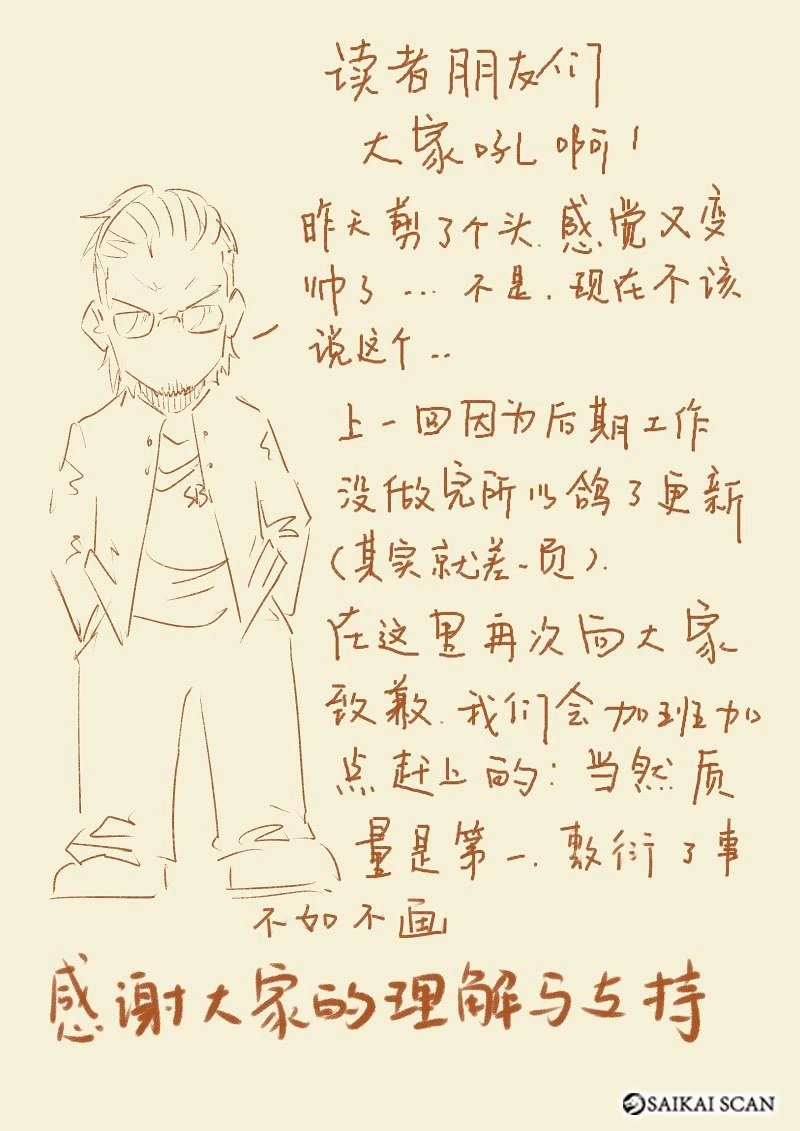 读者朋友们
大家吼啊!
昨天剪了个头.感觉又变
帅了...不是.现在不该
说这个..
SB
上一回因为后期工作
没做完所以鸽了更新
(其实就差一页).
在这里再次向大家
致歉.我们会加班加
点赶上的:当然质
量是第一.敷衍了事
不如不画
感谢大家的理解与支持
SAIKAI SCAN